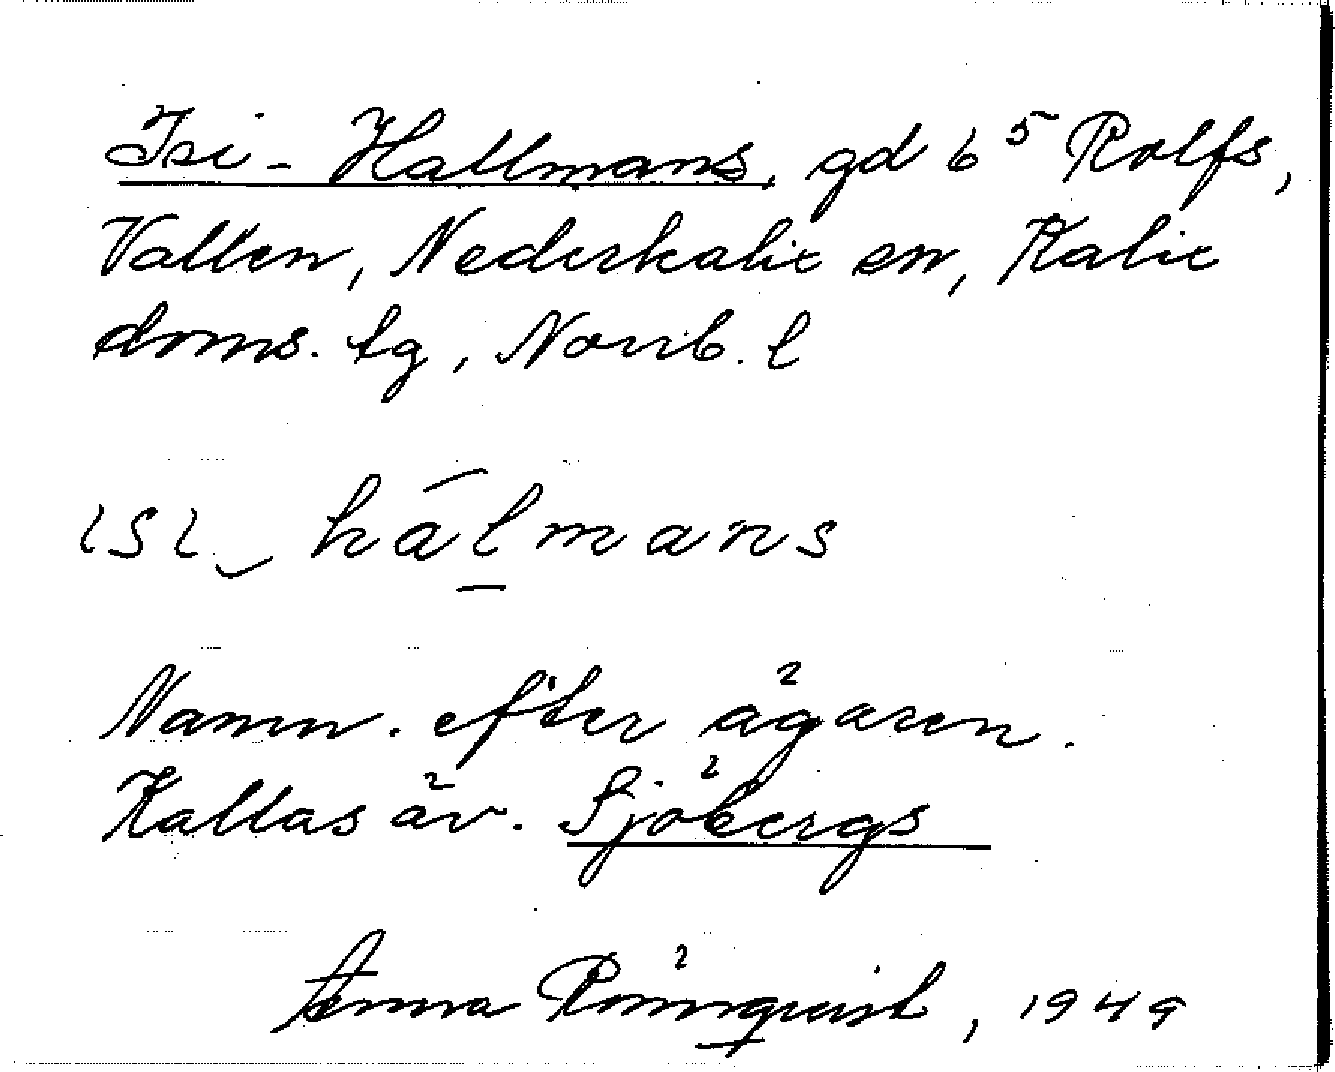 Isi-Hallmans, gd 6⁵ Rolfs,
Vallen, Nederkalix sn, Kalix
doms. tg, Norrb. l
ɩsɩ hálmans
Namn. efter ägaren.
Kallas äv. Sjöbergs
Anna Rönnqvist, 1949